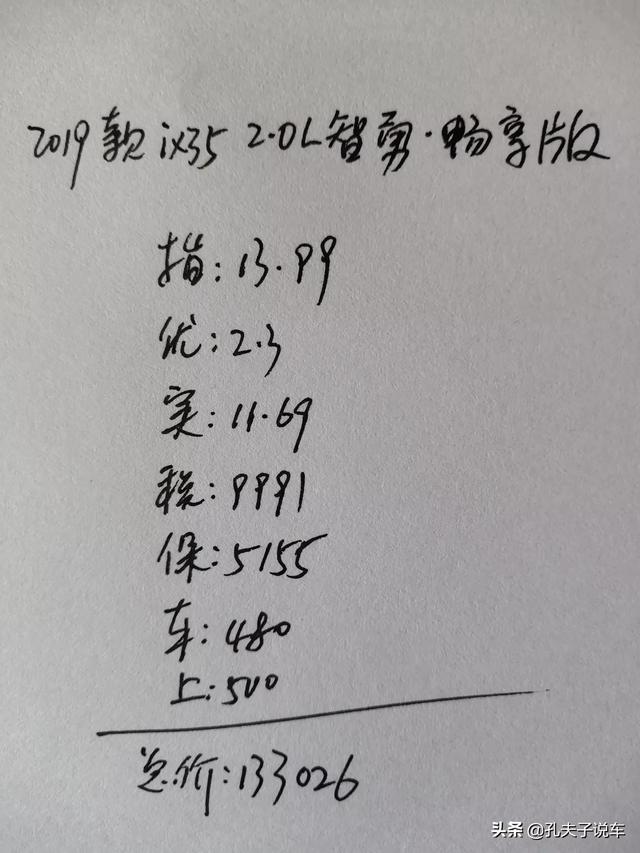 2019款ix35 2.0L智勇·畅享版
指:13.99
优:2.3
实:11.69
税:9991
保:5155
车:480
上:500
总价:133026
头条 @孔夫子说车